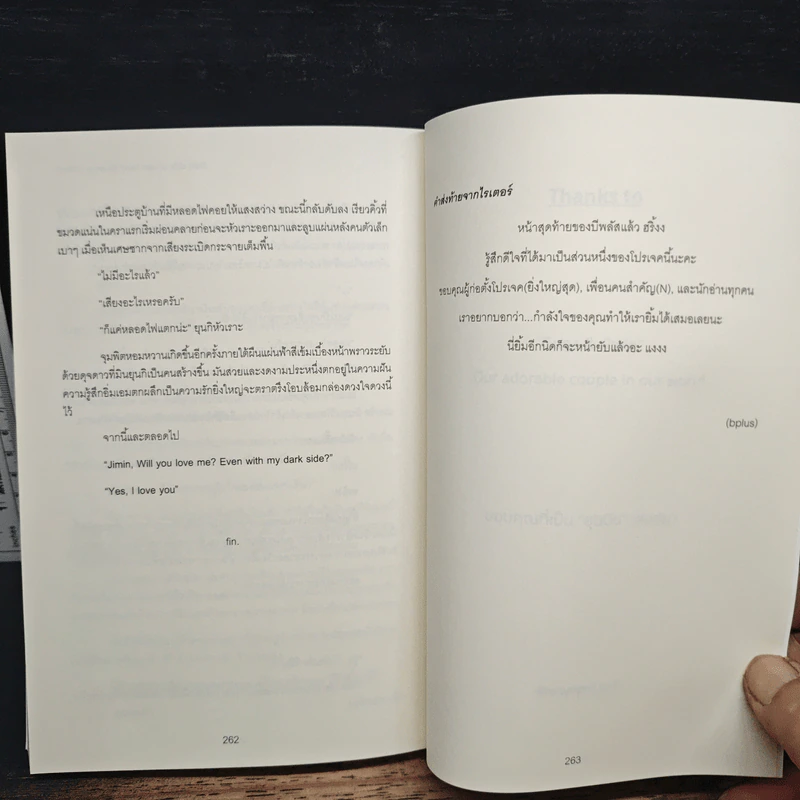 เหนือประตูบ้านที่มีหลอดไฟคอยให้แสงสว่าง ขณะนี้กลับดับลง เรียวคิ้วที่
ขมวดแน่นในคราแรกเริ่มผ่อนคลายก่อนจะหัวเราะออกมาและลูบแผ่นหลังคนตัวเล็ก
เบาๆ เมื่อเห็นเศษซากจากเสียงระเบิดกระจายเต็มพื้น
“ไม่มีอะไรแล้ว”
“เสียงอะไรเหรอครับ”
“ก็แค่หลอดไฟแตกน่ะ” ยุนกิหัวเราะ
จุมพิตหอมหวานเกิดขึ้นอีกครั้งภายใต้ผืนแผ่นฟ้าสีเข้มเบื้องหน้าพราวระยับ
ด้วยดุจดาวที่มินยุนกิเป็นคนสร้างขึ้น มันสวยและงดงามประหนึ่งตกอยู่ในความฝัน
ความรู้สึกอิ่มเอมตกผลึกเป็นความรักยิ่งใหญ่จะตราตรึงโอบล้อมกล่องดวงใจดวงนี้
ไว้
จากนี้และตลอดไป
“Jimin, Will you love me? Even with my dark side?”
“Yes, I love you”
fin.
262
คำส่งท้ายจากไรเตอร์
หน้าสุดท้ายของบีพลัสแล้ว ฮริ้งง
รู้สึกดีใจที่ได้มาเป็นส่วนหนึ่งของโปรเจคนี้นะคะ
ขอบคุณผู้ก่อตั้งโปรเจค(ยิ่งใหญ่สุด), เพื่อนคนสำคัญ(N), และนักอ่านทุกคน
เราอยากบอกว่า...กำลังใจของคุณทำให้เรายิ้มได้เสมอเลยนะ
นี่ยิ้มอีกนิดก็จะหน้ายับแล้วอะ แงงง
(bplus)
263